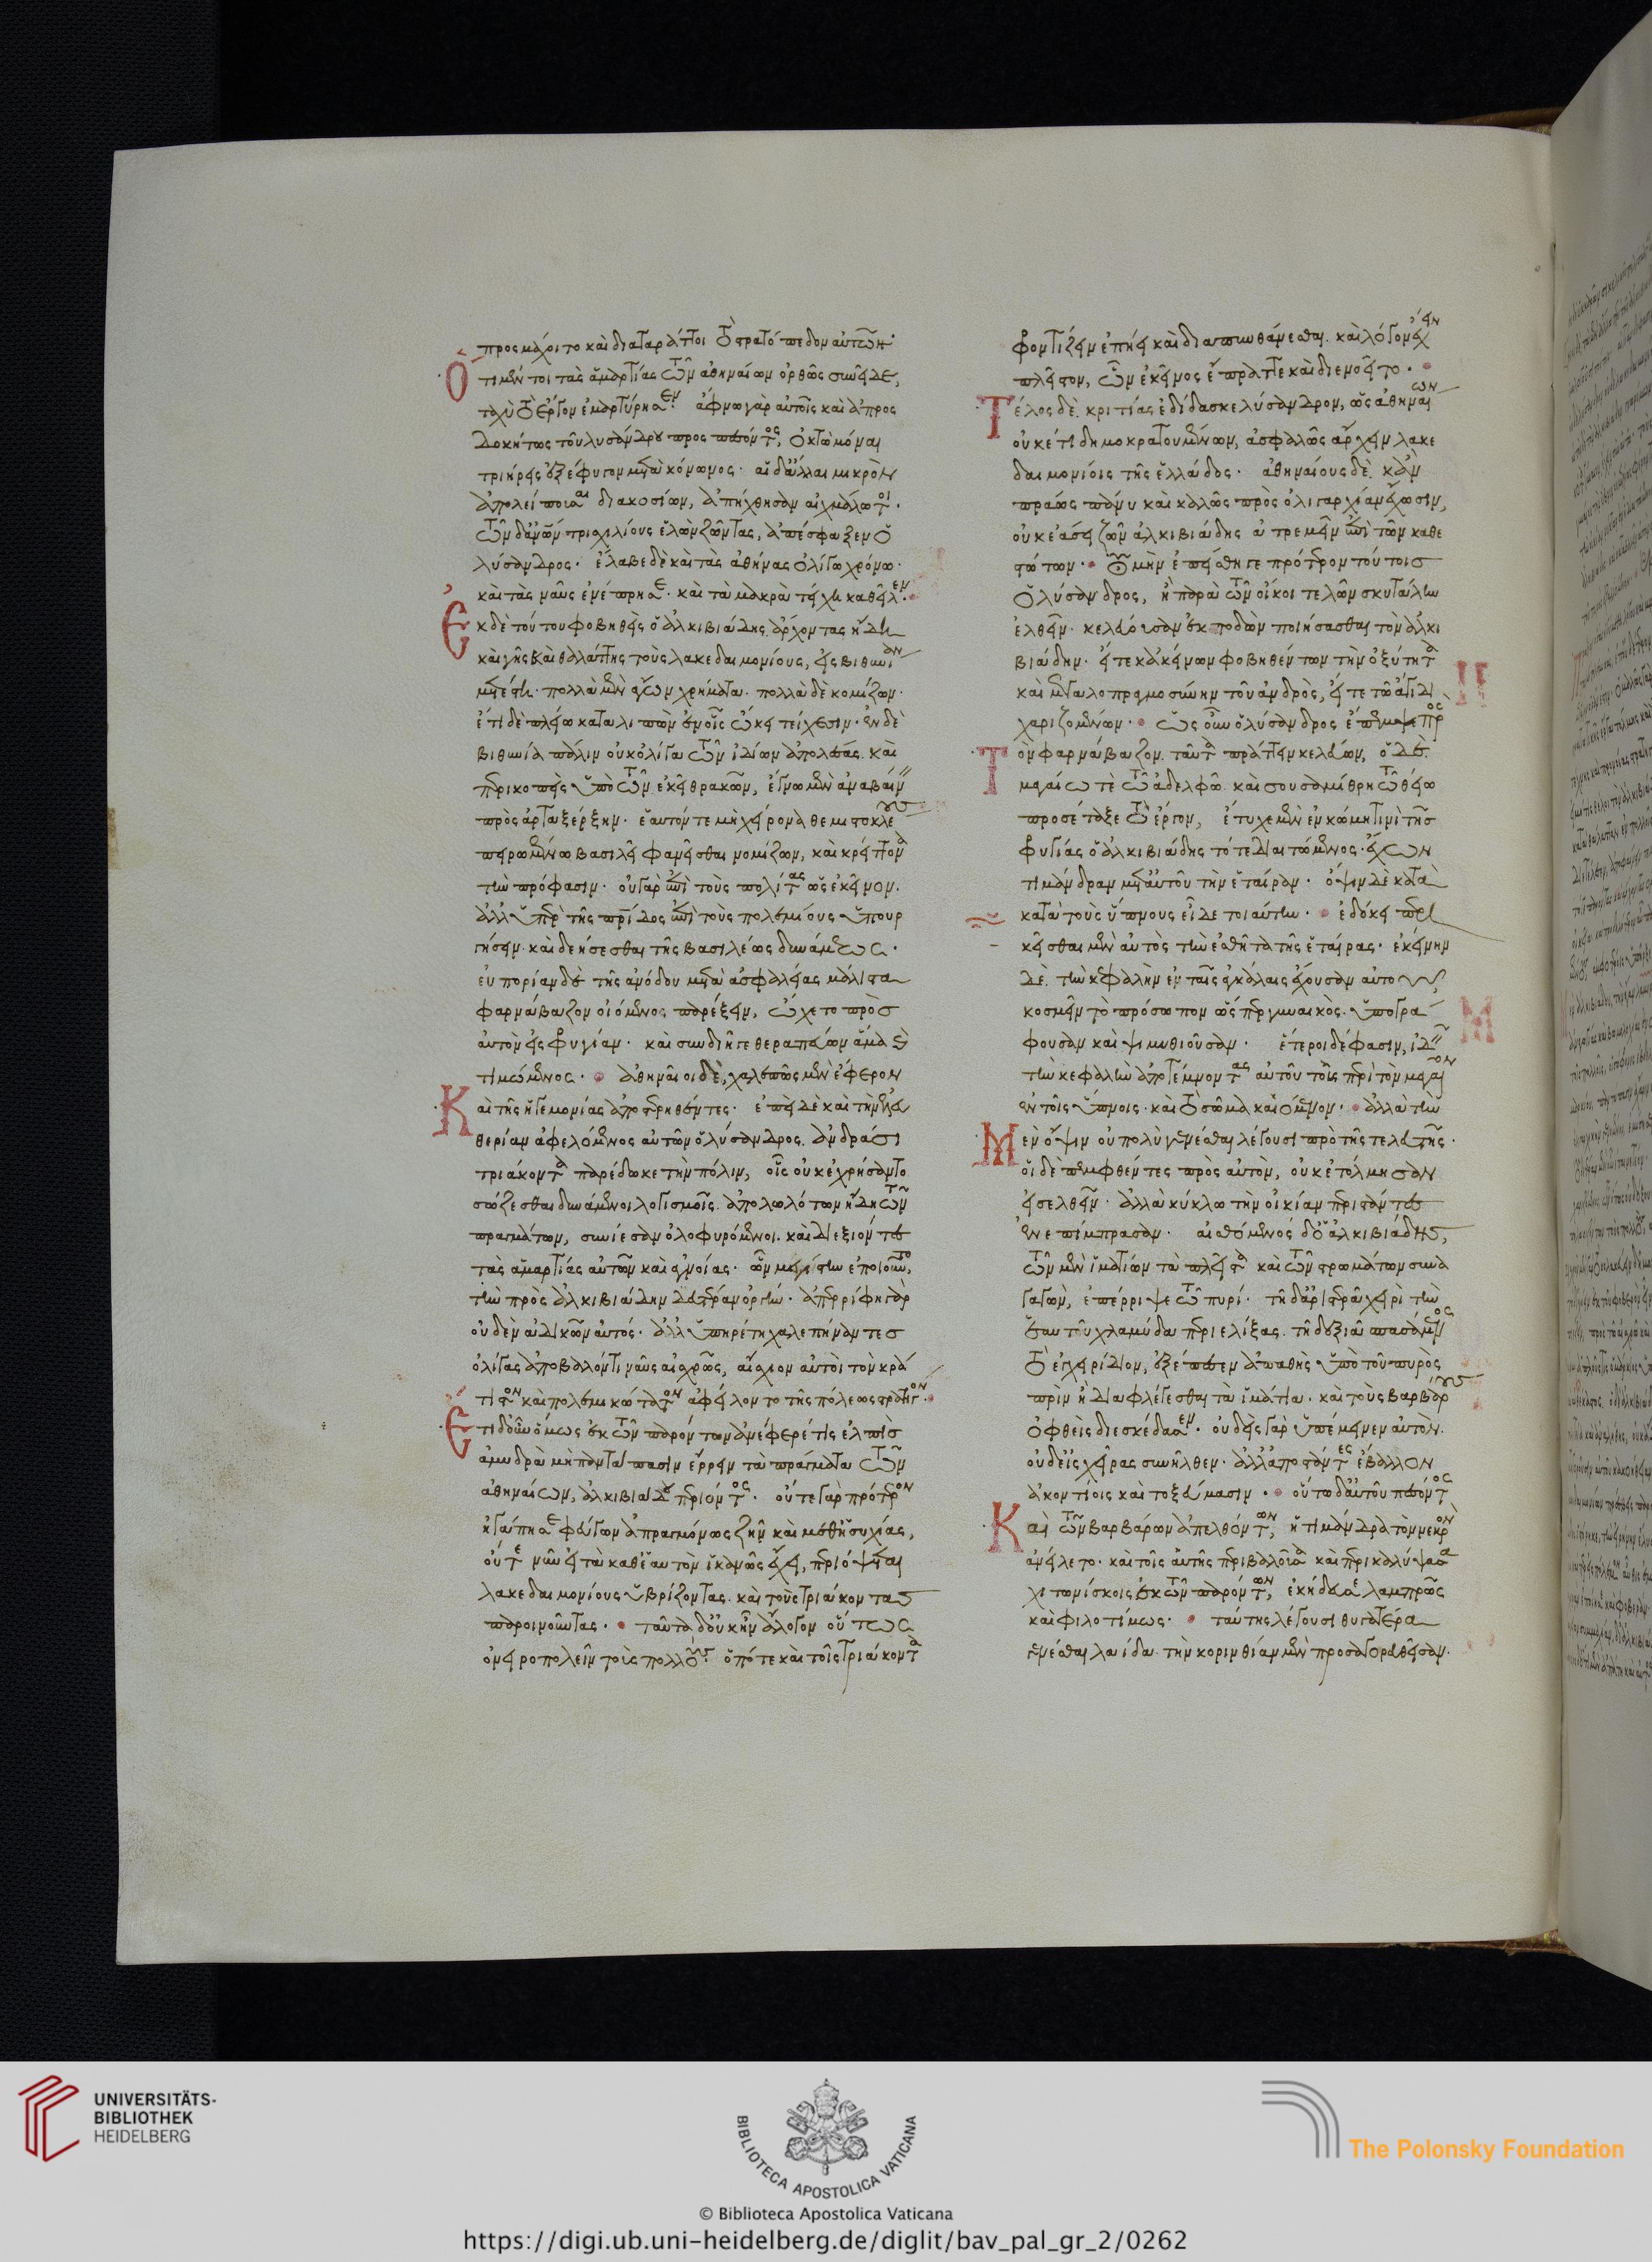 προσμάχοιτο καὶ διαταράττοι τὸ στρατόπεδον αὐτῶν·
Ὅτι μέντοι τὰς ἁμαρτίας τῶν ἀθηναίων ὀρθῶς συνεῖδε,
ταχὺ τὸ ἔργον ἐμαρτύρησεν· ἄφνω γὰρ αὐτοῖς καὶ ἀπροσ
δοκήτως τοῦ λυσάνδρου προσπεσόντος, ὀκτὼ μόναι
τριήρεις ἐξέφυγον μετὰ κόνωνος· αἱ δ' ἄλλαι μικρὸν
ἀπολείπουσαι διακοσίων, ἀπήχθησαν αἰχμάλωτοι·
τῶν δ' ἀνῶν τρισχιλίους ἑλὼν ζῶντας, ἀπέσφαξεν ὁ
λύσανδρος· ἔλαβε δὲ καὶ τὰς ἀθήνας ὀλίγω χρόνω·
καὶ τὰς ναῦς ἐνέπρησε· καὶ τὰ μακρὰ τείχη καθεῖλεν·
Ἐκ δὲ τούτου φοβηθεὶς ὁ ἀλκιβιάδης ἄρχοντας ἤδη
καὶ γῆς καὶ θαλάττης τοὺς λακεδαιμονίους, εἰς βιθυνίαν
μετέστη· πολλὰ μὲν ἄγων χρήματα· πολλὰ δὲ κομίζων·
ἔτι δὲ πλείω καταλιπὼν ἐν οἷς ὤκει τείχεσιν· ἐν δὲ
βιθυνία πάλιν οὐκ ὀλίγα τῶν ἰδίων ἀπολέσας· καὶ
περικοπεὶς ὑπὸ τῶν ἐκεῖ θρακῶν, ἔγνω μὲν ἀναβαίνειν
πρὸς ἀρταξέρξην· ἑαυτόν τε μὴ χείρονα θεμιστοκλέους
πειρωμένω βασιλεῖ φανεῖσθαι νομίζων, καὶ κρείττονα
τὴν πρόφασιν· οὐ γὰρ ἐπὶ τοὺς πολίτας ὡς ἐκεῖνον·
ἀλλ' ὑπὲρ τῆς πρίδος ἐπὶ τοὺς πολεμίους ὑπουρ
γήσειν· καὶ δεήσεσθαι τῆς βασιλέως δυνάμεως·
εὐπορίαν δὲ τῆς ἀνόδου μετὰ ἀσφαλείας μάλιστα
φαρνάβαζον οἰόμενος παρέξειν, ὤχετο πρὸς
αὐτὸν εἰς φρυγίαν· καὶ συνδιῆγε θεραπεύων ἅμα καὶ
τιμώμενος· ἀθηναῖοι δὲ χαλεπῶς μὲν ἔφερον
Καὶ τῆς ἡγεμονίας ἀποστερηθέντες· ἐπεὶ δὲ καὶ τὴν ἐλευ
θερίαν ἀφελόμενος αὐτῶν ὁ λύσανδρος ἀνδράσι
τριάκοντα παρέδωκε τὴν πόλιν, οἷς οὐκ ἐχρήσαντο
σώζεσθαι δυνάμενοι λογισμοῖς ἀπολωλότων ἤδη τῶν
πραγμάτων, συνίεσαν ὀλοφυρόμενοι· καὶ διεξιόντες
τὰς ἁμαρτίας αὐτῶν καὶ ἀγνοίας· ὧν μεγίστην ἐποιοῦντο,
τὴν πρὸς ἀλκιβιάδην δευτέραν ὀργήν· ἀπερρίφη γὰρ
οὐδὲν ἀδικῶν αὐτός· ἀλλ' ὑπηρέτη χαλεπήναντες
ὀλίγας ἀποβαλόντι ναῦς αἰσχρῶς, αἴσχιον αὐτοὶ τὸν κρά
τιστον καὶ πολεμικώτατον ἀφείλοντο τῆς πόλεως στρατηγόν·
Ἔτι δ' οὖν ὅμως ἐκ τῶν παρόντων ἀνέφερέ τις ἐλπὶς
ἀμυδρὰ μὴ παντάπασιν ἔρρειν τὰ πράγματα τῶν
ἀθηναίων, ἀλκιβιάδου περιόντος· οὔτε γὰρ πρότερον
ἠγάπησε φεύγων ἀπραγμόνως ζῆν καὶ μεθ' ἡσυχίας,
οὔτε νῦν εἰ τὰ καθ' ἑαυτὸν ἱκανῶς ἔχει, περιόψεται
λακεδαιμονίους ὑβρίζοντας· καὶ τοὺς τριάκοντα
παροινοῦντας· ταῦτα δ' οὐκ ἦν ἄλογον οὕτως
ὀνειροπολεῖν τοὺς πολλούς· ὁπότε καὶ τοῖς τριάκοντα
φροντίζειν ἐπήει καὶ διαπυνθάνεσθαι· καὶ λόγον ἔχειν
πλεῖστον, ὧν ἐκεῖνος ἔπραττε καὶ διενοεῖτο·
Τέλος δὲ κριτίας ἐδίδασκε λύσανδρον, ὡς ἀθηναίων
οὐκ ἔτι δημοκρατουμένων, ἀσφαλῶς ἄρχειν λακε
δαιμονίοις τῆς ἑλλάδος· ἀθηναίους δὲ κἂν
πράως πάνυ καὶ καλῶς πρὸς ὀλιγαρχίαν ἔχωσιν,
οὐκ ἐάσει ζῶν ἀλκιβιάδης ἀτρεμεῖν ἐπὶ τῶν καθε
στώτων· οὐ μὴν ἐπείσθη γε πρότερον τούτοις
ὁ λύσανδρος, ἢ παρὰ τῶν οἴκοι τελῶν σκυτάλην
ἐλθεῖν· κελεύουσαν ἐκποδὼν ποιήσασθαι τὸν ἀλκι
βιάδην· εἴτε κἀκείνων φοβηθέντων τὴν ὀξύτητα
καὶ μεγαλοπραγμοσύνην τοῦ ἀνδρὸς, εἴτε τῶ ἄγιδι
χαριζομένων· ὡς οὖν ὁ λύσανδρος ἔπεμψε πρὸς
Τὸν φαρνάβαζον ταῦτα πράττειν κελεύων, ὁ δὲ
μαγαίω τε τῶ ἀδελφῶ καὶ σουσαμίθρη τῶ θείω
προσέταξε τὸ ἔργον, ἔτυχε μὲν ἐν κώμη τινὶ τῆς
φρυγίας ὁ ἀλκιβιάδης τότε διαιτώμενος· ἔχων
τιμάνδραν μεθ' αὑτοῦ τὴν ἑταίραν· ὄψιν δὲ κατὰ
κατὰ τοὺς ὕπνους εἶδε τοιαύτην· ἐδόκει περι
κεῖσθαι μὲν αὐτὸς τὴν ἐσθῆτα τῆς ἑταίρας· ἐκείνην
δὲ τὴν κεφαλὴν ἐν ταῖς ἀγκάλαις ἔχουσαν αὐτοῦ,
κοσμεῖν τὸ πρόσωπον ὥσπερ γυναικὸς· ὑπογρά
φουσαν καὶ ψιμυθιοῦσαν· ἕτεροι δέ φασιν, ἰδεῖν
τὴν κεφαλὴν ἀποτέμνοντας αὐτοῦ τοὺς περὶ τὸν μαγαῖον
ἐν τοῖς ὕπνοις· καὶ τὸ σῶμα καιόμενον· ἀλλὰ τὴν
Μὲν ὄψιν οὐ πολὺ γενέσθαι λέγουσι πρὸ τῆς τελευτῆς·
οἱ δὲ πεμφθέντες πρὸς αὐτὸν, οὐκ ἐτόλμησαν
εἰσελθεῖν· ἀλλὰ κύκλω τὴν οἰκίαν περιστάντες
ἐνεπίμπρασαν· αἰσθόμενος δ' ὁ ἀλκιβιάδης,
τῶν μὲν ἱματίων τὰ πλεῖστα καὶ τῶν στρωμάτων συνα
γαγὼν, ἐπέρριψε τῶ πυρί· τῆ δ' ἀριστερᾶ χειρὶ τὴν
ἑαυτοῦ χλαμύδα περιελίξας· τῆ δεξιᾶ σπασάμενος
τὸ ἐγχειρίδιον, ἐξέπεσεν ἀπαθὴς ὑπὸ τοῦ πυρὸς
πρὶν ἢ διαφλέγεσθαι τὰ ἱμάτια· καὶ τοὺς βαρβάρους
ὀφθεὶς διεσκέδασεν· οὐδεὶς γὰρ ὑπέμεινεν αὐτὸν·
οὐδ' εἰς χεῖρας συνῆλθεν· ἀλλ' ἀποστάντες ἔβαλλον
ἀκοντίοις καὶ τοξεύμασιν· οὕτω δ' αὐτοῦ πεσόντος
Καὶ τῶν βαρβάρων ἀπελθόντων, ἡ τιμάνδρα τὸν νεκρὸν
ἀνείλετο· καὶ τοῖς αὑτῆς περιβαλοῦσα καὶ περικαλύψασα
χιτωνίσκοις ἐκ τῶν παρόντων, ἐκήδευσε λαμπρῶς
καὶ φιλοτίμως· ταύτης λέγουσι θυγατέρα
γενέσθαι λαίδα τὴν κορινθίαν μὲν προσαγορευθεῖσαν·
UNIVERSITÄTS-
BIBLIOTHEK
HEIDELBERG
BIBLIOTECA APOSTOLICA VATICANA
The Polonsky Foundation
© Biblioteca Apostolica Vaticana
https://digi.ub.uni-heidelberg.de/diglit/bav_pal_gr_2/0262